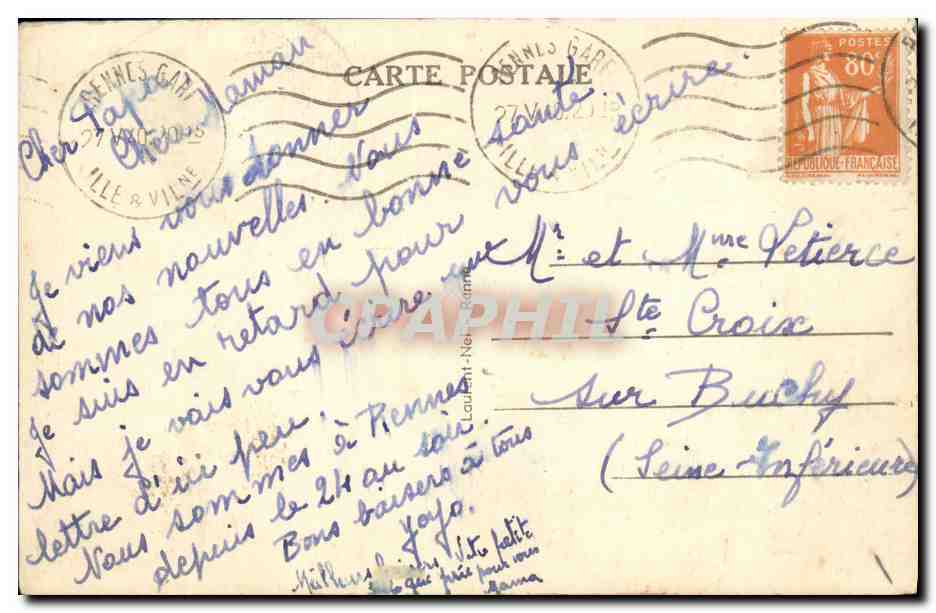 CARTE POSTALE
RENNES GARE
ILLE & VILNE
RENNES GARE
ILLE & VILNE
POSTES
80c
REPUBLIQUE-FRANÇAISE
Cher Papa
Chère Maman
Je viens vous donner
de nos nouvelles. Nous
sommes tous en bonne santé
Je suis en retard pour vous écrire.
Mais je vais vous écrire une
lettre d'ici peu.
Nous sommes à Rennes
depuis le 24 au soir.
Bons baisers à tous
Yoyo.
Meilleurs baisers, Votre petite
qui prie pour vous
Laurent-Nel Rennes
CPAPHIL
Mr et Mme Letierce
Ste Croix
sur Buchy
(Seine Inférieure)